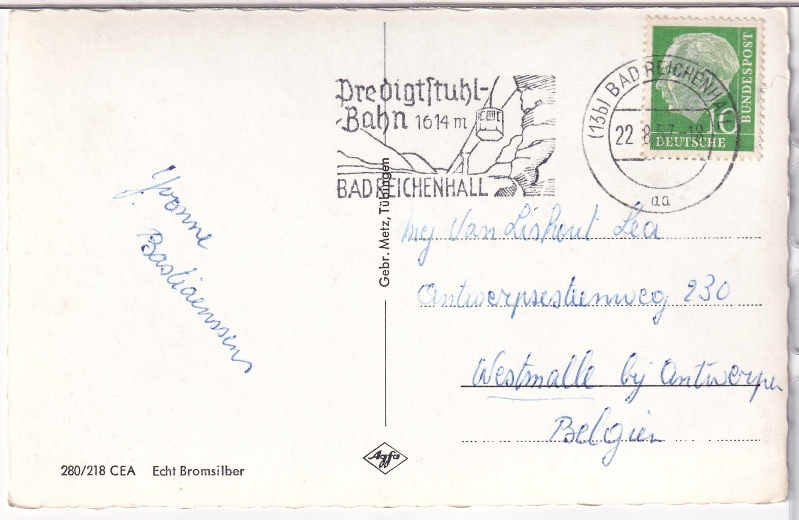 Predigtstuhl-
Bahn 1614 m
BAD REICHENHALL
(13b) BAD REICHENHALL
22.8.57.-18
aa
10
DEUTSCHE
BUNDESPOST
Gebr. Metz, Tübingen
Yvonne
Bastiaenssens
Mej Van Lishout Lea
Antwerpsesteenweg 230
Westmalle bij Antwerpen
Belgien
280/218 CEA Echt Bromsilber
Agfa